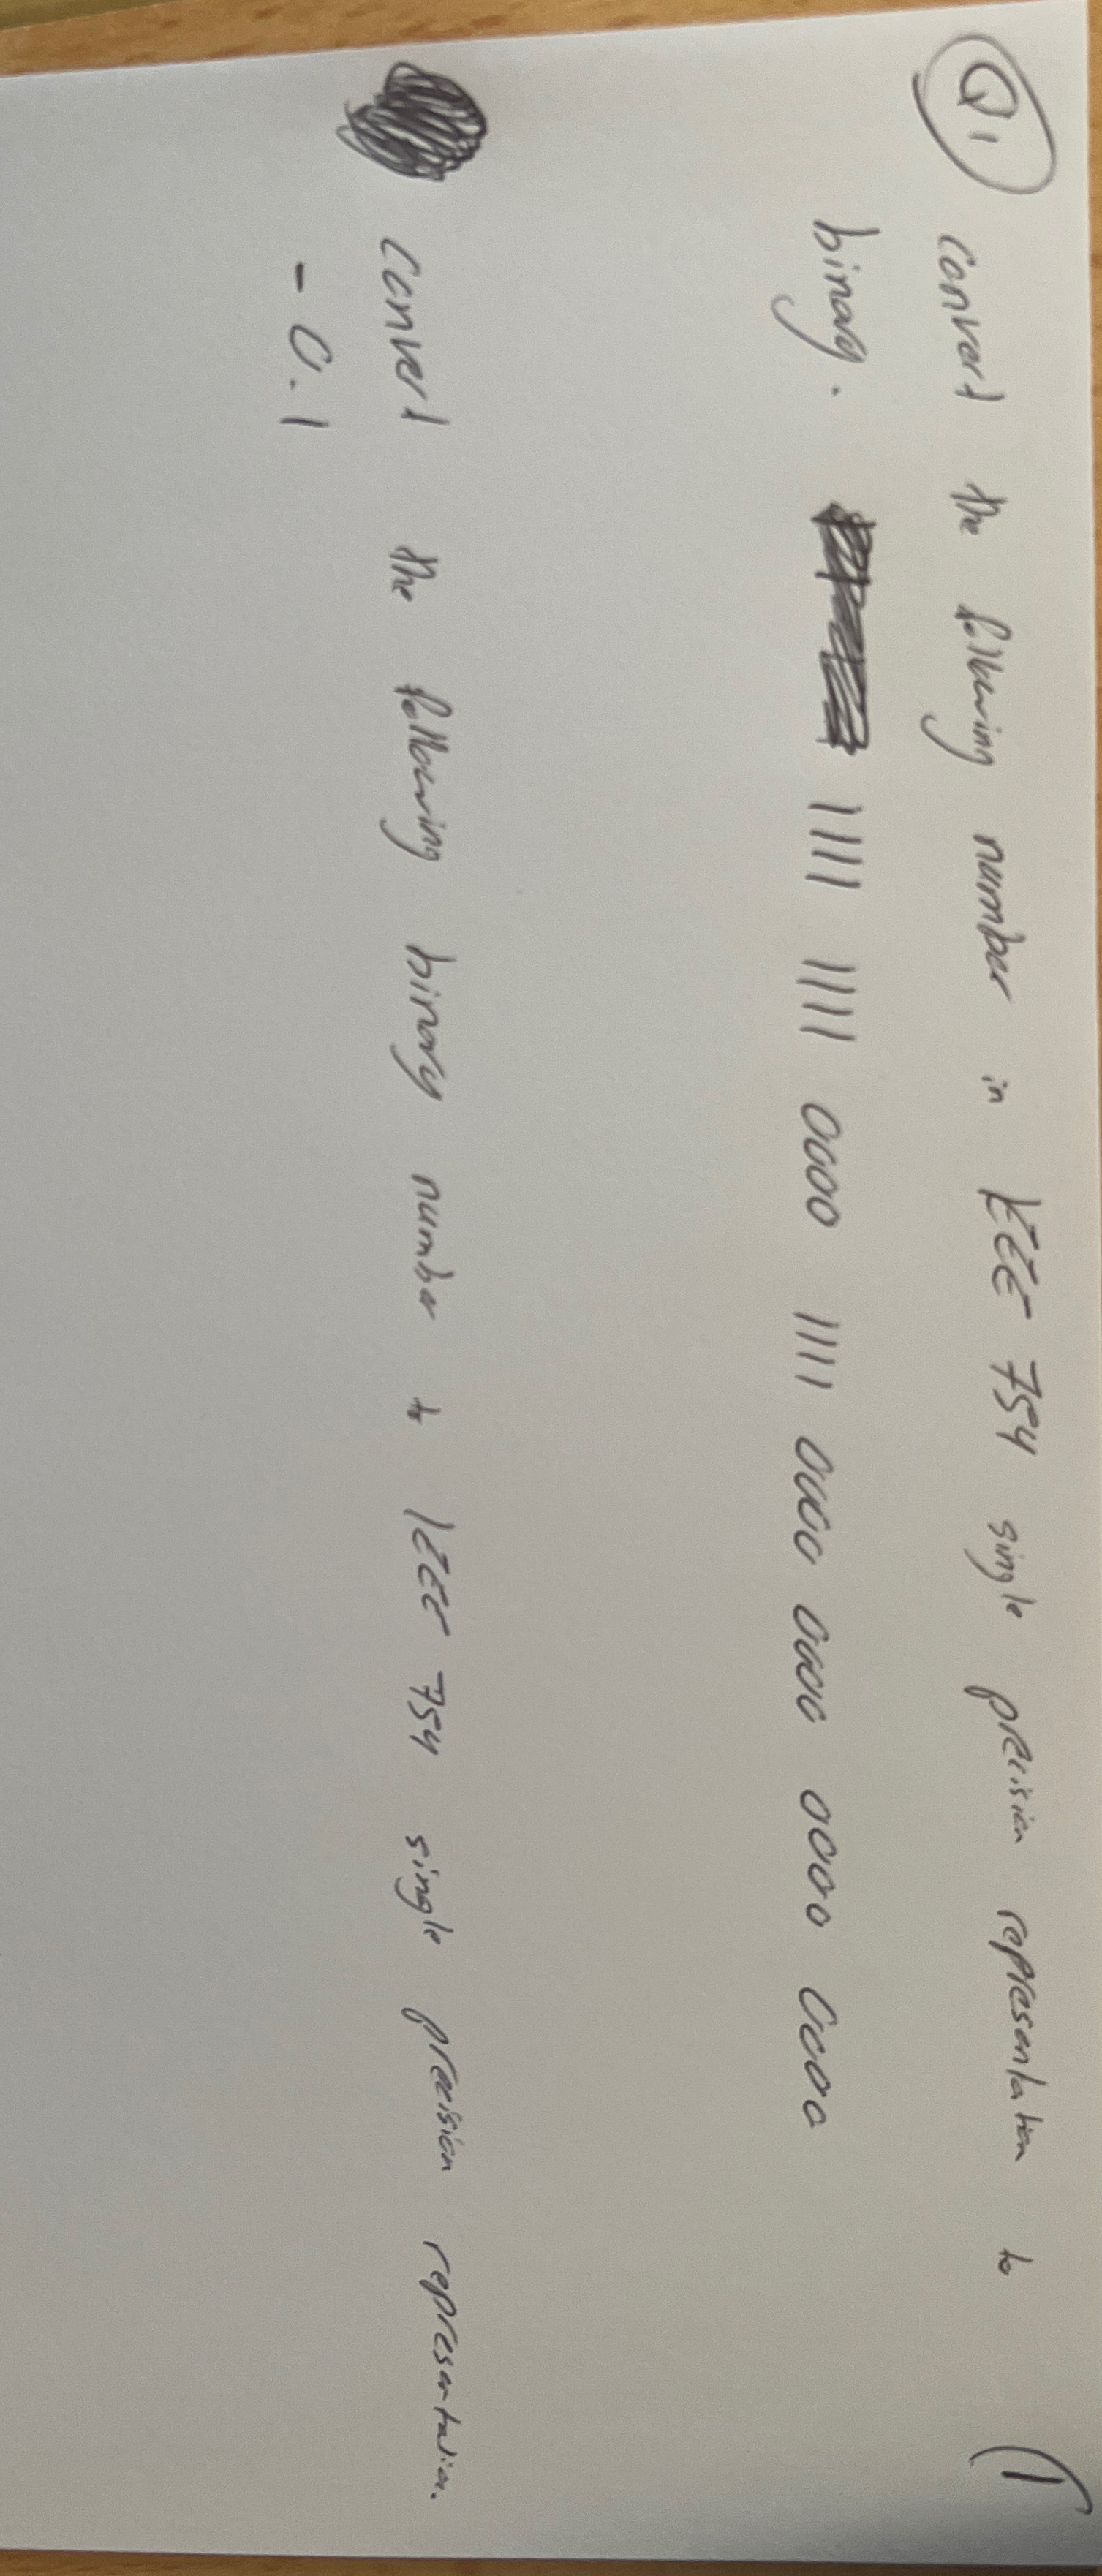 Q1 convert the following number in IEEE 754 single precision representation to
binary. 1111 1111 0000 1111 0000 0000 0000 0000
convert the following binary number to IEEE 754 single precision representation.
- 0.1